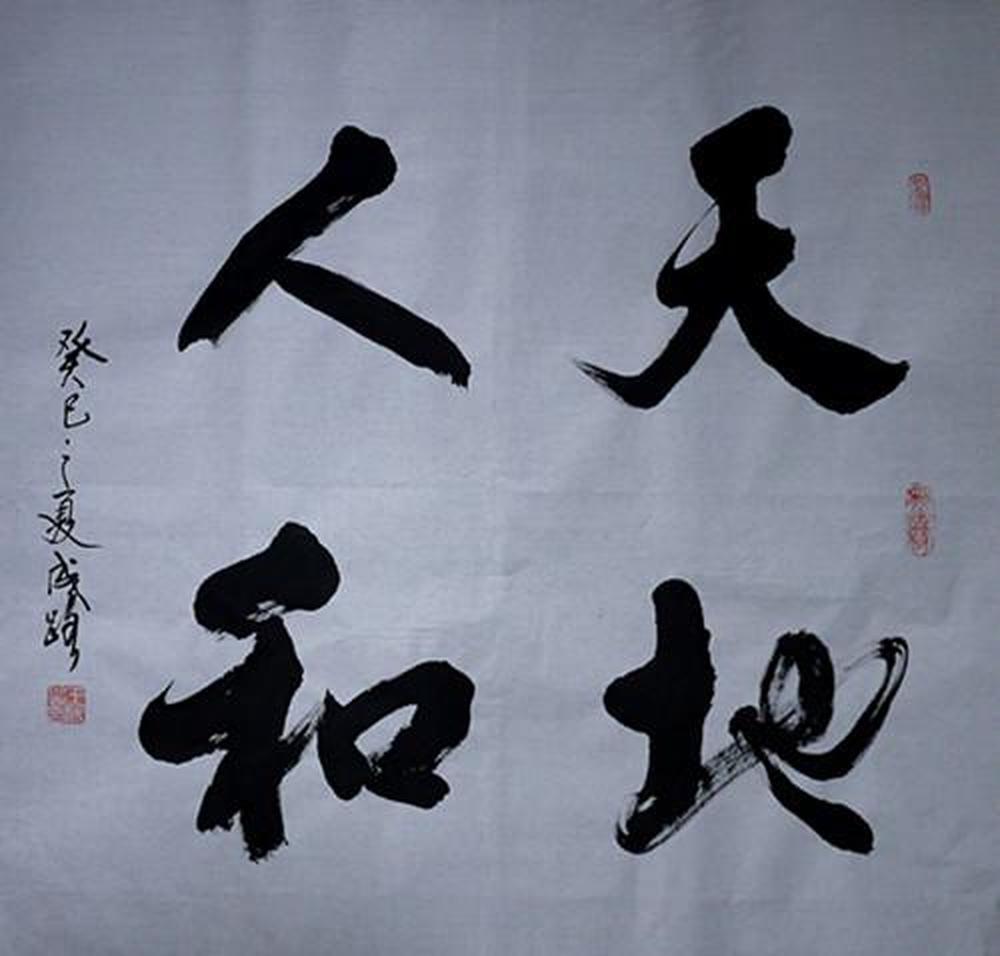 天地
人和
癸巳之夏成峰